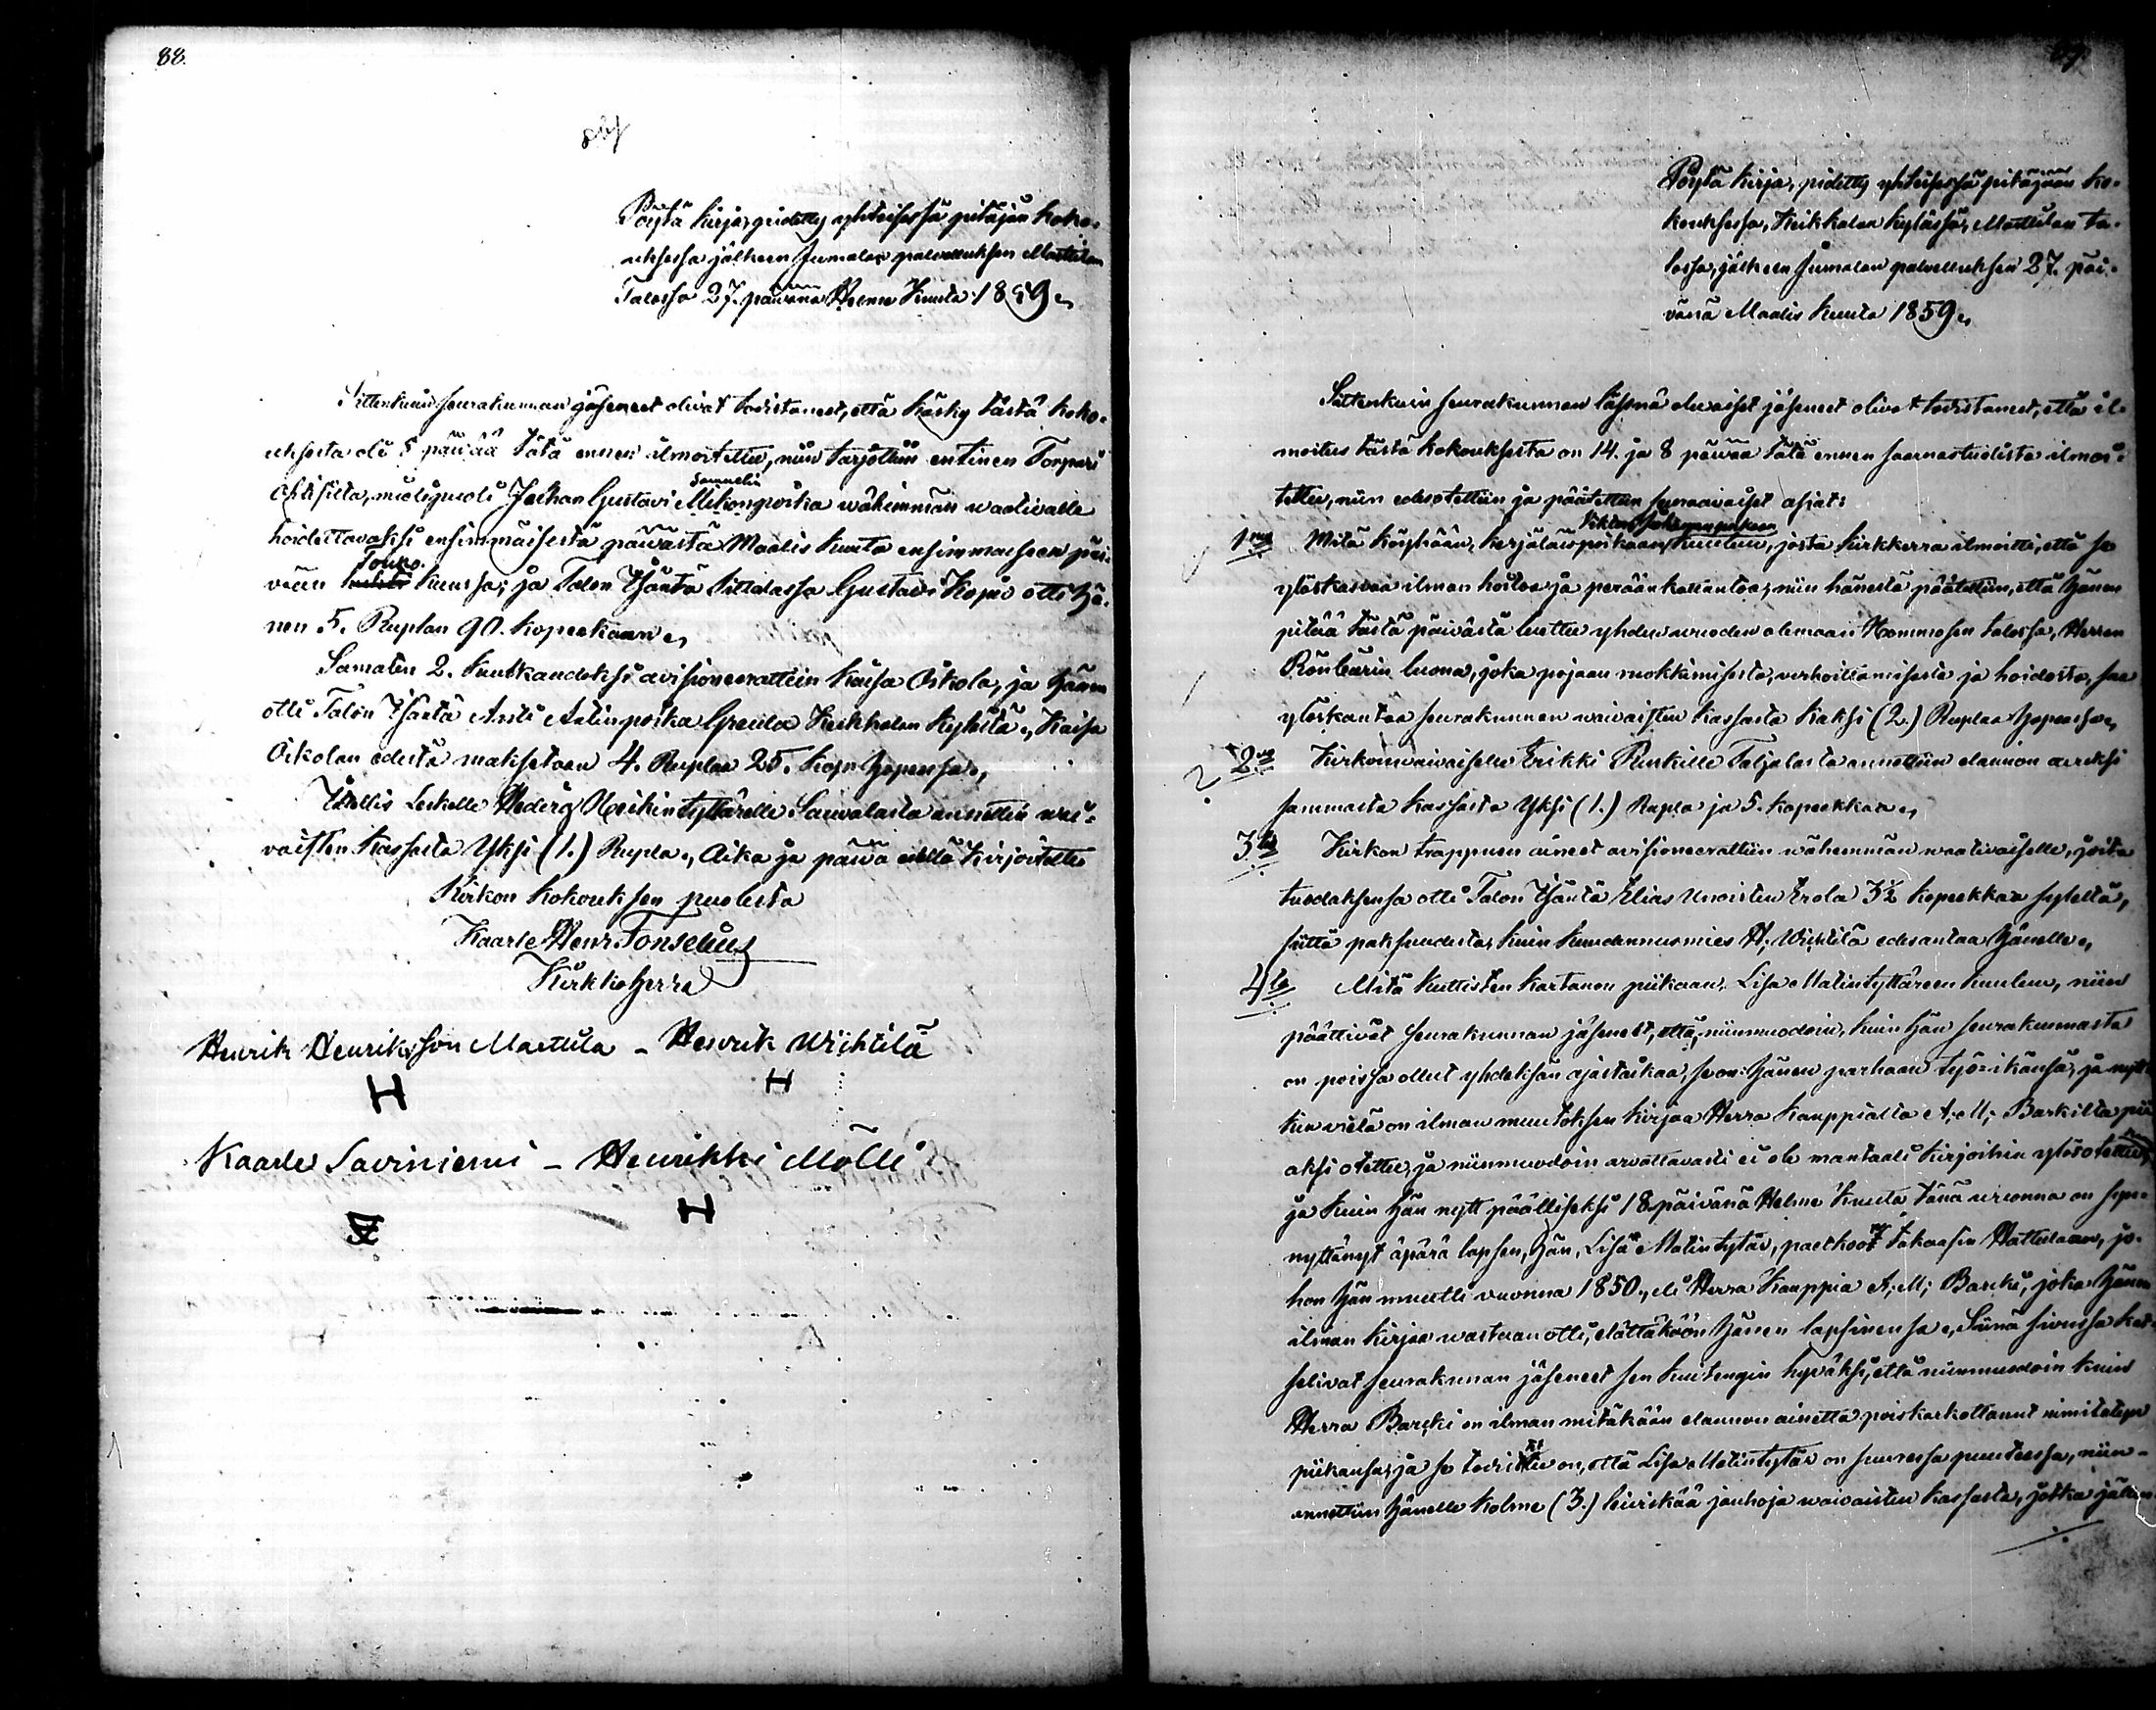 88.
Pöytä kirja, pidetty yhteisessä pitäjän koko-
uksessa jälkeen Jumalan palvelluksen Marttilan
Talossa 27. päivänä Helme Kuuta 1859.
Sittenkuin seurakunnan jäsenet olivat todistanet, että käsky tästä koko-
uksesta oli 8 päivää tätä ennen ilmoitettu, niin tarjottiin entinen Torpari
Ahtisilta, mielipuoli Johan Gustavi Samuelin poika wähimmän waativalle
hoidettavaksi ensimmäisestä päivästä Maalis kuuta ensimmäiseen päi-
vään Touko kuussa; ja Talon Isäntä Gustavi Kopio otti hä-
nen 5. Ruplan 90. kopeekaan.
Samaten 2. kuukaudeksi avisioneerattiin Kaisa Oikola, ja hänen
otti Talon Isäntä Anti Antinpoika Greula Keikkalan kylästä, Kaisa
Oikolan edestä maksetaan 4. Ruplaa 25. Kop. hopeassa.
Itsellis Leskelle Hedvig Heikintyttärelle Sauvalasta annettiin wai-
vaisten Kassasta Yksi (1.) Rupla. Aika ja päivä eillä kirjoitettu
Kirkon Kokouksen puolesta
Kaarle Henr. Fonselius
Kirkkoherra
Henrik Henriksson Marttila - Henrik Wichtilä
H H
Kaarle Saviniemi - Henrikki Mölli
H
Pöytä Kirja, pidetty yhteisessä pitäjään ko-
kouksessa, Keikkalan kylässä, Marttilan ta-
lossa, jälkeen Jumalan palvelluksen 27. päi-
vänä Maalis Kuuta 1859.
Sittenkuin seurakunnan läsnä olevaiset jäsenet olivat todistanet, että il-
moitus tästä kokouksesta on 14. ja 8 päivää tätä ennen saarnastuolista ilmoi-
tettu, niin edesotettiin ja päätettiin seuraavaiset asiat:
1mo Mitä köyhään, kerjälais poikaan kuuluu, josta kirkkerra ilmoitti, että se
ylöskasvaa ilman hoitoa ja perään kattantoa, niin hänestä päätettiin, että hänen
pitää tästä päivästä luettu yhden vuoden olemaan Hommosen talossa, Herran
Rönbärin luona, joka pojaan ruokkimisesta, verhoittamisesta ja hoidosta, saa
ylöskantaa seurakunnan waivaisten kassasta kaksi (2.) Ruplaa hopeassa.
2do Kirkonvaivaiselle Erikki Ruskille Taljalasta annettiin elannon avuksi
sammasta kassasta Yksi (1.) Rupla ja 5. kopeekkaa.
3tio Kirkon trappuun aineet avisioneerattiin wähemmän waativaiselle, joita
tuodaksensa otti Talon Isäntä Elias Erola 3½ kopeekkaa syleltä,
siittä paksuudesta, kuin kuudennusmies H. Wichtilä edesantaa hänelle.
4to Mitä kuttisten Kartanon piikaan Lisa Matintyttäreen kuuluu, niin
päättivät seurakunnan jäsenet, että, niinmuodoin, kuin hän seurakunnasta
on poissa ollut yhdeksän ajastaikaa, se on: hänen parhaan työ-ikänsä, ja nytt
kun vielä on ilman muutoksen kirjaa Herra kauppialta A. M. Barkilta pii
aksi otettu, ja niinmuodoin arvattavasti ei ole mantaali kirjoihin ylösotettu,
ja kuin hän nytt päälliseksi 18 päivänä Helme kuuta tänä vuonna on syn-
nyttänyt äpärä lapsen, hän, Lisa Matintytär, palatkoot takaisin Hattulaan, jo-
hon hän muutti vuonna 1850, eli Herra Kauppia A. M. Barcki, joka hänen
ilman kirjaa wastaan otti, elättäköön hänen lapsinensa. Siinä sivussa kat-
selivat seurakunnan jäsenet sen kuitengin hyväksi, että niinmuodoin kuin
Herra Barcki on ilman mitäkään elannon ainetta poiskarkottanut nimitetyn
piikansa, ja se todistettu on, että Lisa Matintytär on suuressa puuteessa, niin
annettiin hänelle kolme (3.) leiviskää jauhoja waivaisten kassasta, jotka jälem